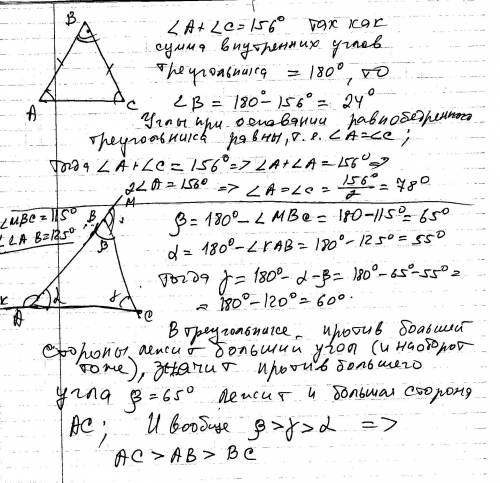 B
A
C
∠A+∠C=156° так как
сумма внутренних углов
треугольника = 180°, то
∠B = 180°-156° = 24°
Углы при основании равнобедренного
треугольника равны, т.е. ∠A=∠C;
тогда ∠A+∠C = 156° => ∠A+∠A = 156° =>
2∠A = 156° => ∠A=∠C = 156°/2 = 78°
∠MBC=115°
AB=125°
M
B
β
K
A
α
γ
C
β = 180° - ∠MBC = 180 - 115° = 65°
α = 180° - ∠KAB = 180° - 125° = 55°
тогда γ = 180° - α - β = 180° - 65° - 55° =
= 180° - 120° = 60°.
В треугольнике против большей
стороны лежит больший угол (и наоборот
тоже), значит против большего
угла β = 65° лежит и большая сторона
AC; И вообще β > γ > α =>
AC > AB > BC